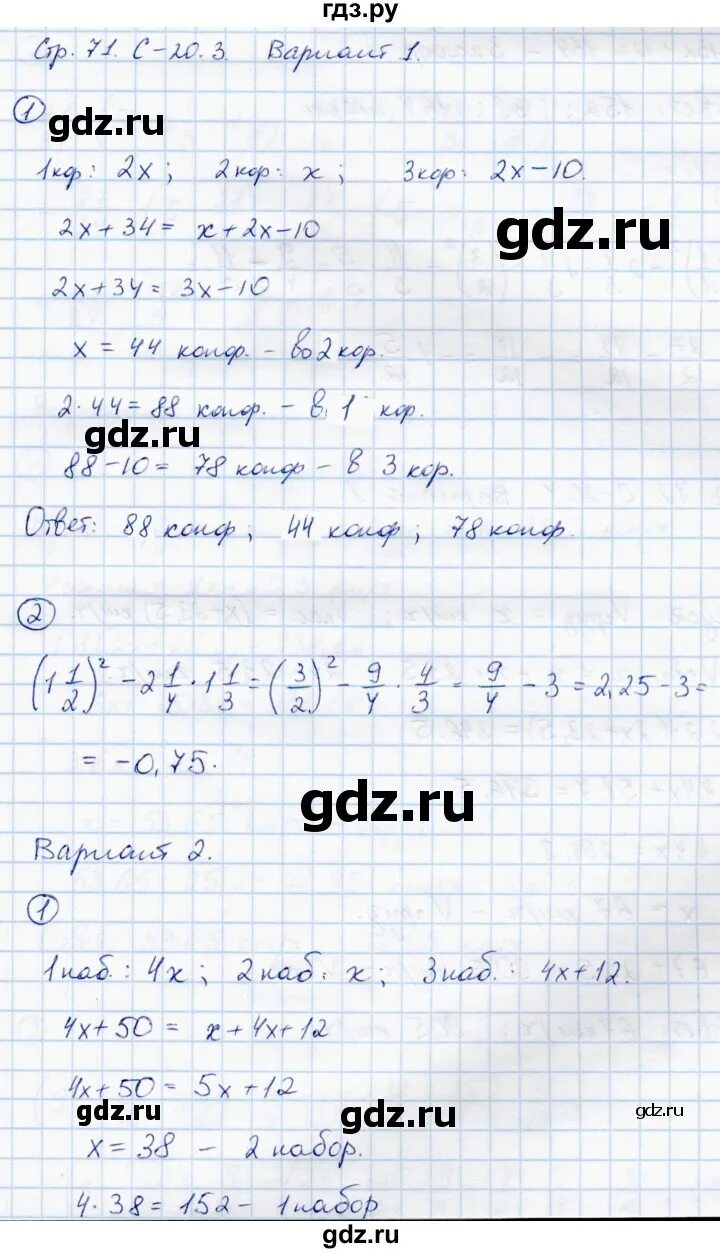 гдз.ру
Стр. 71. С-20.3. Вариант 1.
①
gdz.ru
1кор: 2x; 2кор: x; 3кор: 2x-10.
gdz.ru
2x+34 = x+2x-10
2x+34 = 3x-10
x = 44 конф. - во 2 кор.
2·44=88 конф. - в 1 кор.
gdz.ru
88-10= 78 конф - в 3 кор.
Ответ: 88 конф, 44 конф; 78 конф.
②
(1 1/2)² - 2 1/4 · 1 1/3 = (3/2)² - 9/4 · 4/3 = 9/4 - 3 = 2,25-3=
= -0,75.
gdz.ru
Вариант 2.
①
1наб.: 4x; 2наб: x; 3наб.: 4x+12.
4x+50 = x+4x+12
4x+50 = 5x+12
gdz.ru gdz.ru gdz.ru
x=38 - 2 набор.
4·38=152- 1набор
gdz.ru